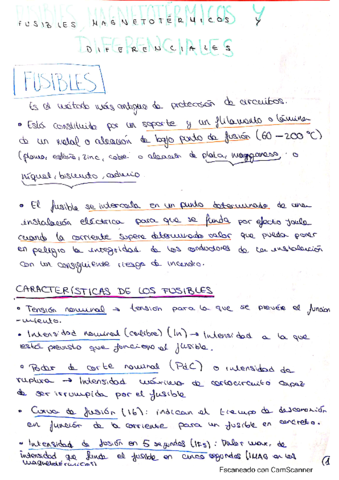 FUSIBLES MAGNETOTÉRMICOS Y
DIFERENCIALES
FUSIBLES
Es el método más antiguo de protección de circuitos.
• Está constituido por un soporte y un filamento o lámina
de un metal o aleación de bajo punto de fusión (60-200ºC)
(plomo, estaño, zinc, cobre o aleación de plata, manganeso o
níquel, bismuto, cadmio
• El fusible se intercala en un punto determinado de una
instalación eléctrica para que se funda por efecto Joule
cuando la corriente supere determinado valor que pueda poner
en peligro la integridad de los conductores de la instalación
con un consiguiente riesgo de incendio.
CARACTERÍSTICAS DE LOS FUSIBLES
• Tensión nominal → tensión para la que se prevée el funcion
-amiento.
• Intensidad nominal (calibre) (In) → Intensidad a la que
está previsto que funcione el fusible.
• Poder de corte nominal (PdC) o intensidad de
ruptura → Intensidad máxima de cortocircuito capaz
de ser irrumpida por el fusible
• Curva de fusión (I6): indican el tiempo de desconexión
en función de la corriente para un fusible en concreto.
• Intensidad de fusión en 5 segundos (IF5): Valor max. de
intensidad que funde el fusible en cinco segundos (IMAG en los
magnetotérmicos)
Escaneado con CamScanner